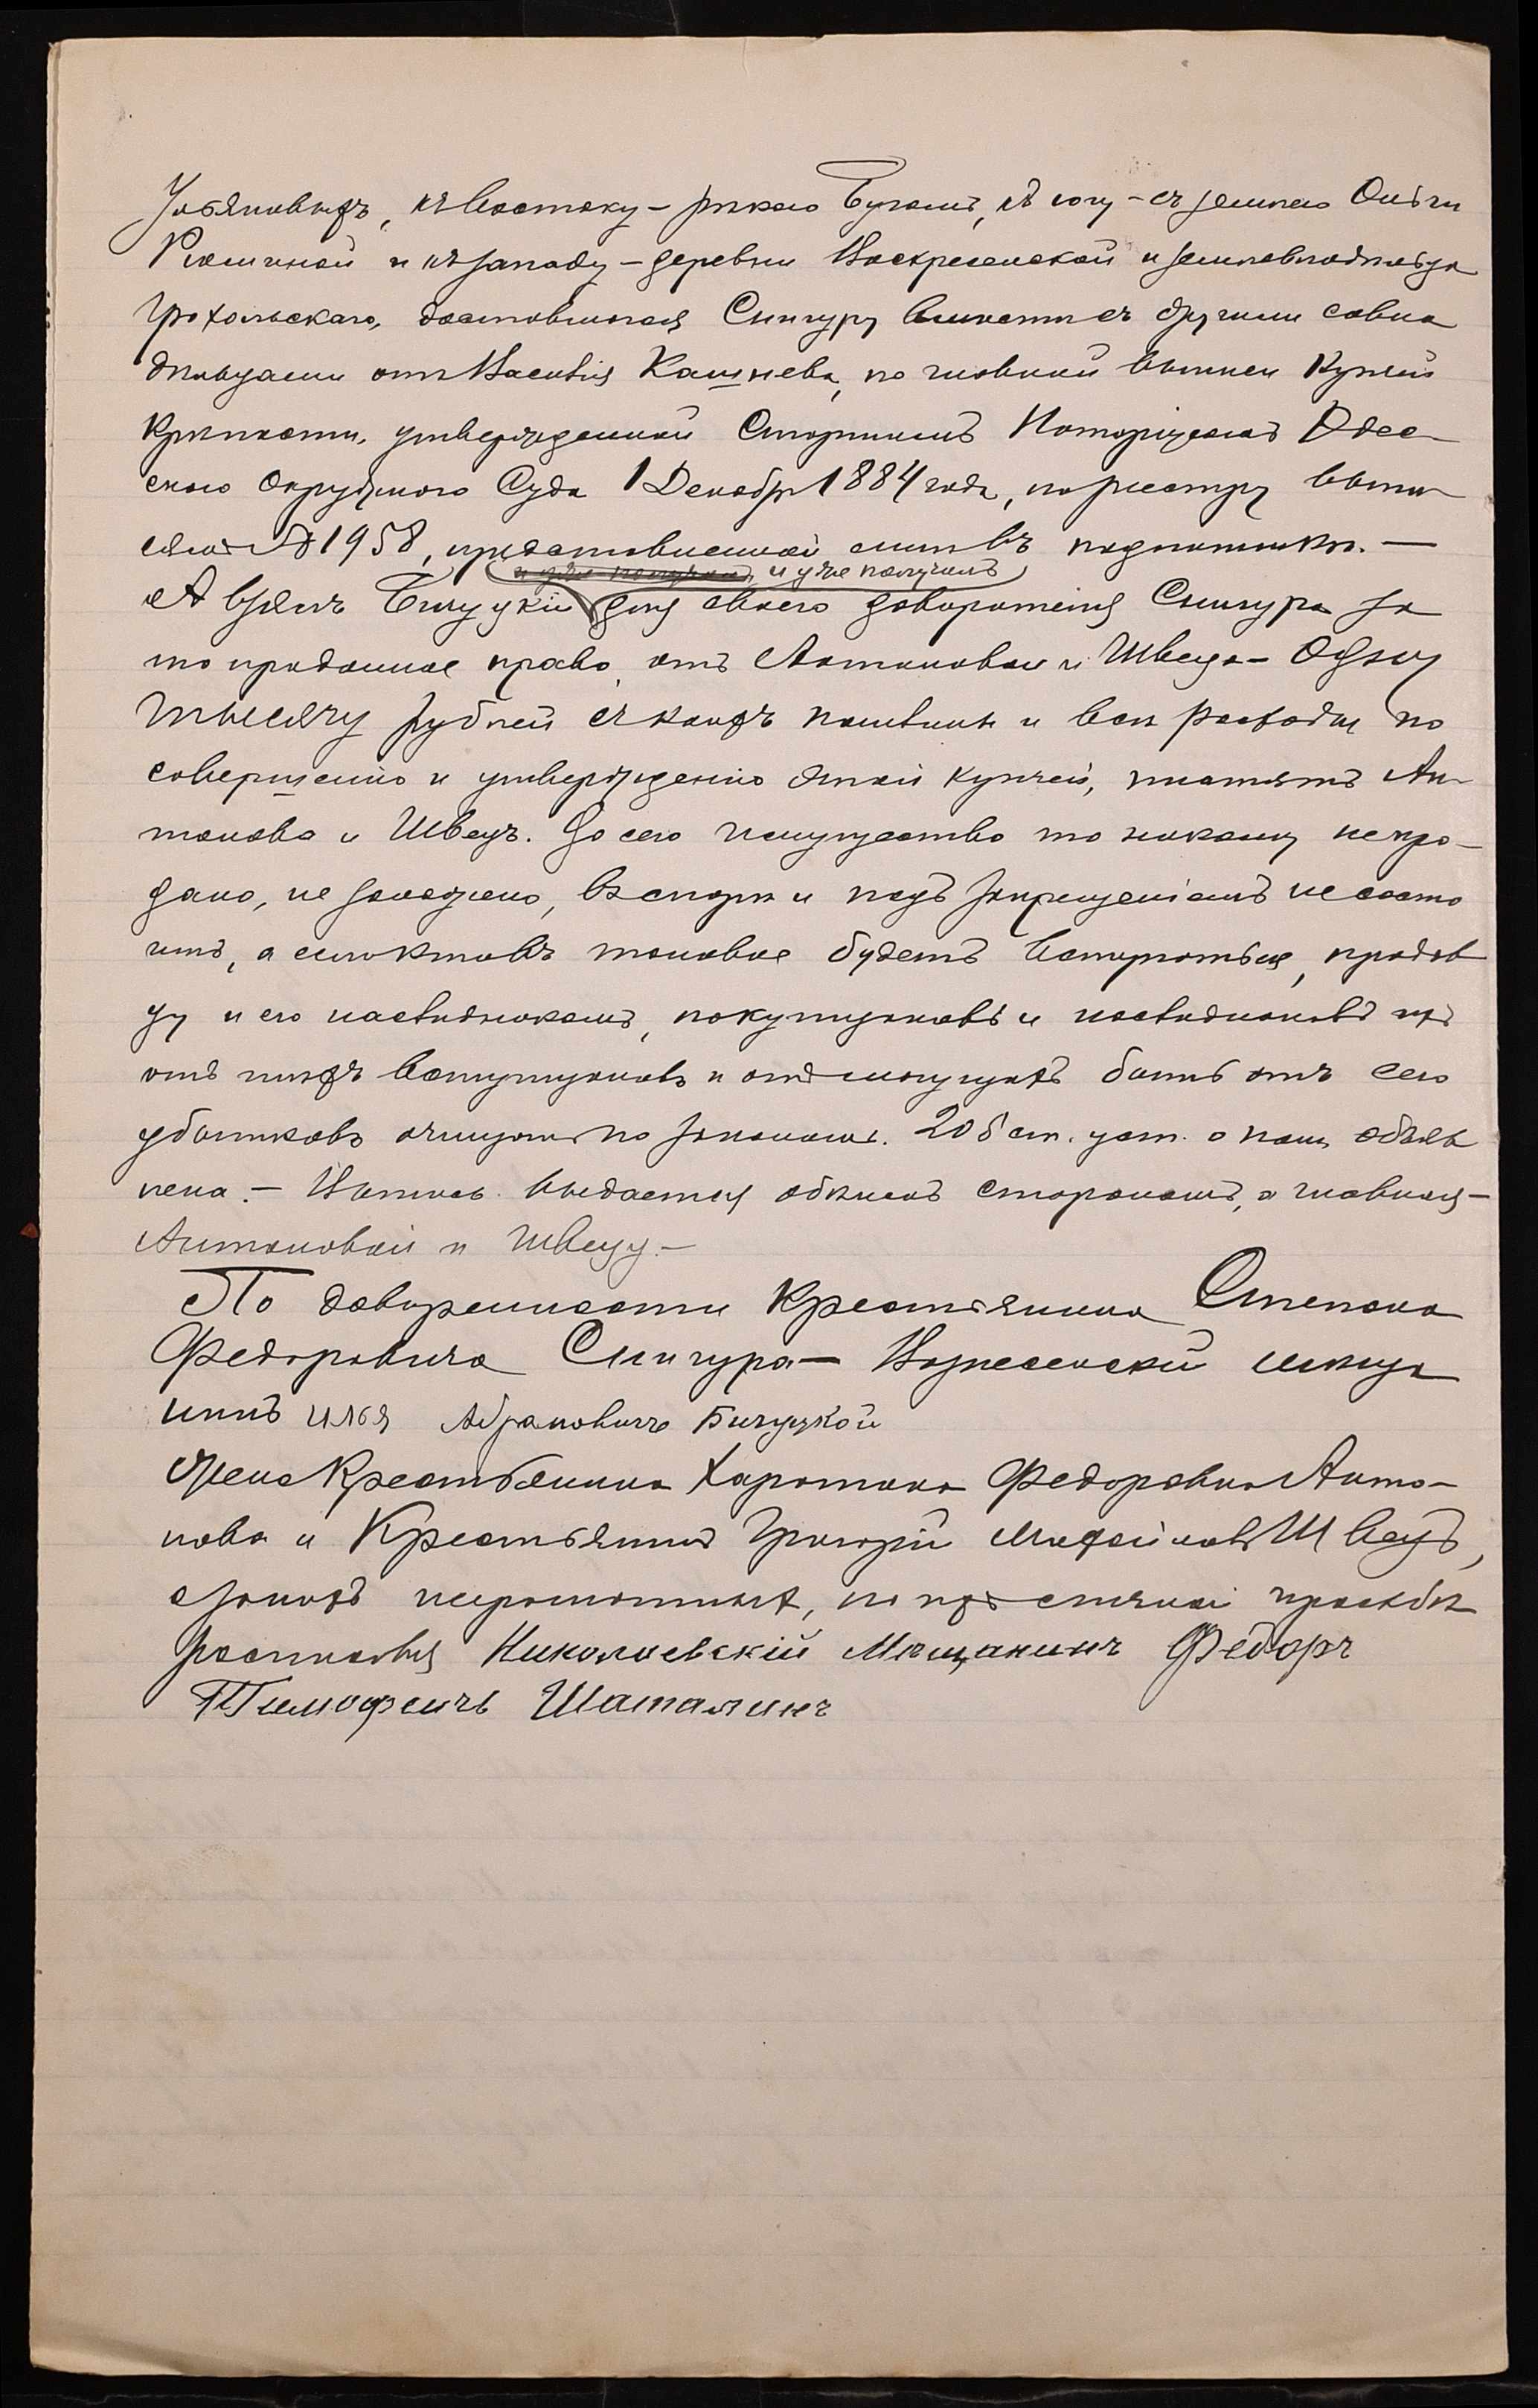 Ульяновыхъ, къ востоку – рѣкою Бугомъ, къ югу – съ землею Ольги
и къ западу – деревни Воскресенской и землевладѣльца
Грохольскаго, доставшагося Снигуру вмѣстѣ съ другими совла
дѣльцами отъ Василія Кашнева, по главной выписи Купчей
Крѣпости, утвержденной Старшимъ Нотаріусомъ Одес-
скаго Окружнаго Суда 1 Декабря 1884 года, по реестру
№ 1958, представленной мнѣ въ подлинникѣ. –
и уже получилъ, и уже получилъ
А взялъ Бичуцкій для своего довѣрителя Снигура за
то проданное право, отъ Антоновой и Швеца – Одну
тысячу рублей с коихъ пошлины и всѣ расходы по
совершенію и утвержденію этой купчей, платятъ Ан-
тонова и Швецъ. До сего имущество то никому не про-
дано, не заложено, въ спорѣ и подъ запрещеніемъ не состо
итъ, а если кто въ таковое будетъ вступаться, продав
цу и его наслѣдникамъ, покупщиковъ и наслѣдниковъ ихъ
отъ тѣхъ вступщиковъ и отъ могущихъ быть отъ сего
убытковъ очищать по законамъ. 208 ст. уст. о пош. объяв
лена. – Выпись выдается обѣимъ сторонамъ, а главная –
Антоновой и Швецу. –
По довѣренности Крестьянина Степана
Федоровича Снигура – Вознесенскій мѣща
нинъ Илья Абрамовичъ Бичуцкой
Жена Крестьянина Харитина Федоровна Анто-
нова и Крестьянинъ Григорій Михайловъ Швецъ,
а за нихъ неграмотныхъ, по ихъ личной просьбѣ
росписался Николаевскій Мѣщанинъ Федоръ
Тимофеичъ Шаталинъ